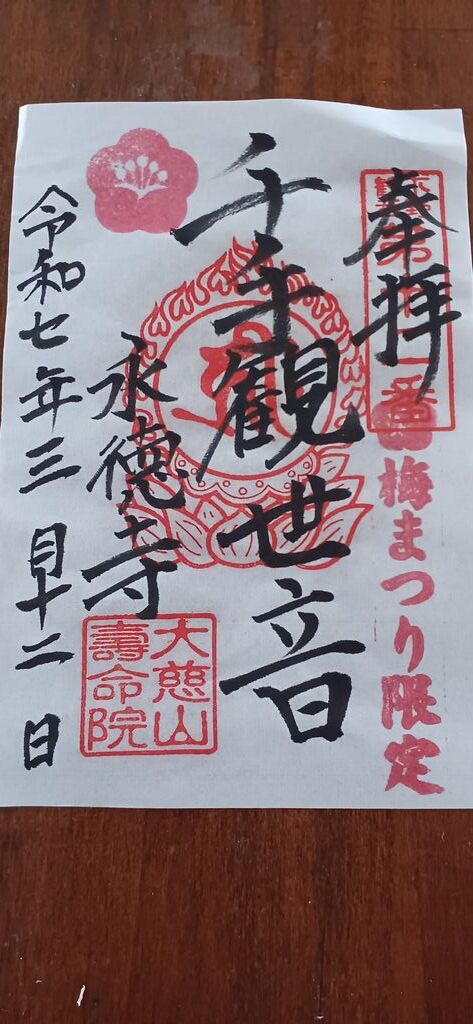 奉拝
梅まつり限定
千手観世音
永徳寺
大慈山
壽命院
令和七年三月十二日